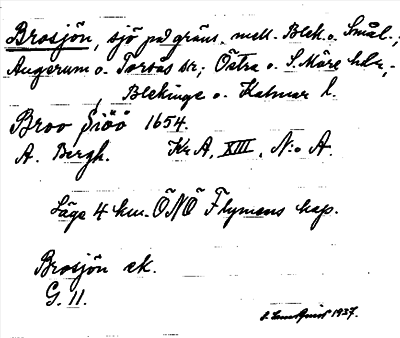 Brosjön, sjö på gräns. mell. Blek. o. Smål.;
Augerum o. Torsås sr; Östra o. S. Möre hdr,
Blekinge o. Kalmar l.
Broo Siöö 1654.
A. Bergh. Kr A, XIII, N:o A.
Läge 4 km. ÖNÖ Flymens kap.
Brosjön ek.
G. 11.
1937.